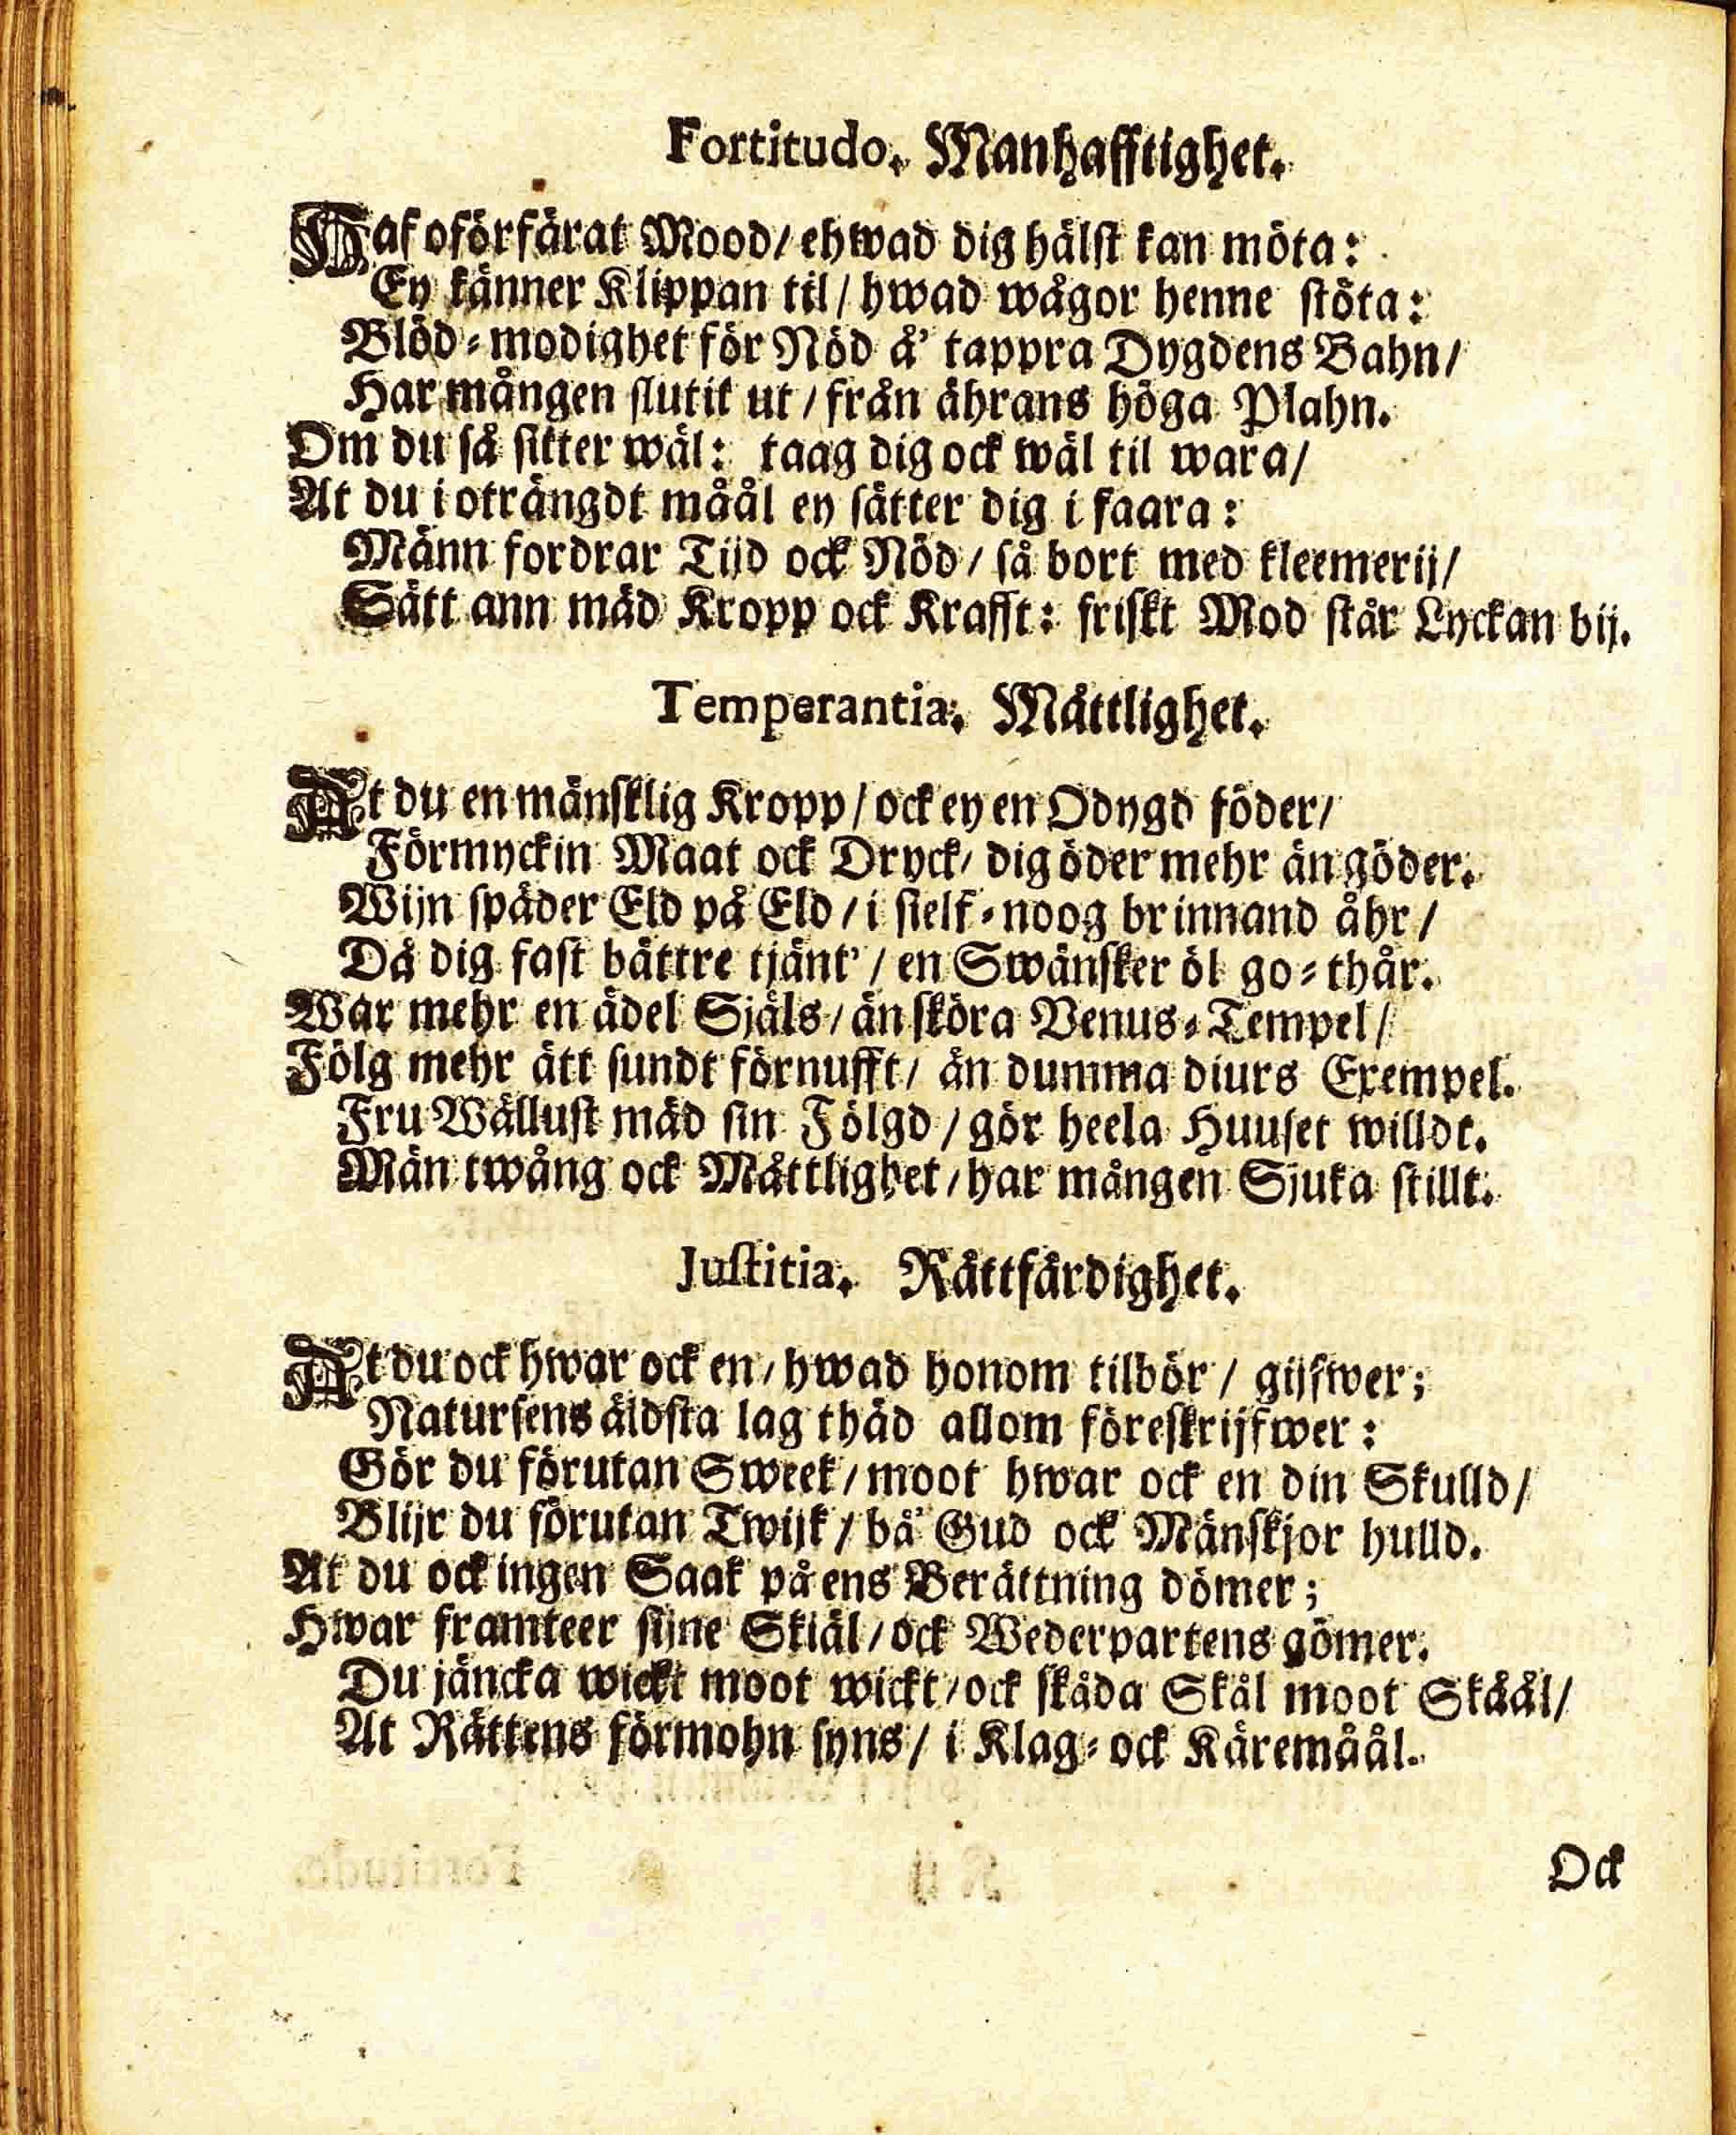 Fortitudo. Manhafftighet.
Haf oförfärat Mood/ ehwad dig hälst kan möta:
Ey känner Klippan til/ hwad wågor henne stöta:
Blöd-modighet för Nöd å' tappra Dygdens Bahn/
Har mången slutit ut/ från ährans höga Plahn.
Om du så sitter wäl: taag dig ock wäl til wara/
At du i oträngdt måål ey sätter dig i faara:
Männ fordrar Tijd ock Nöd/ så bort med kleemerij/
Sätt ann mäd Kropp ock Krafft: friskt Mod står Lyckan bij.
Temperantia. Måttlighet.
At du en mänsklig Kropp/ ock ey en Odygd föder/
Förmyckin Maat ock Dryck/ dig öder mehr än göder.
Wijn späder Eld på Eld/ i sielf-noog brinnand åhr/
Då dig fast bättre tjänt'/ en Swänsker öl go-thår.
War mehr en ädel Själs/ än sköra Venus-Tempel/
Fölg mehr ätt sundt förnufft/ än dumma diurs Exempel.
Fru Wällust mäd sin Fölgd/ gör heela Huuset willdt.
Män twång ock Måttlighet/ har mången Sjuka stillt.
Justitia. Rättfärdighet.
At du ock hwar ock en/ hwad honom tilbör/ gijfwer;
Natursens äldsta lag thäd allom föreskrijfwer:
Gör du förutan Sweek/ moot hwar ock en din Skulld/
Blijr du förutan Twijk/ bå' Gud ock Mänskjor hulld.
At du ock ingen Saak på ens Berättning dömer;
Hwar framteer sijne Skiäl/ ock Wederpartens gömer.
Du jäncka wickt moot wickt/ ock skåda Skål moot Skåål/
At Rättens förmohn syns/ i Klag- ock Käremåål.
Ock